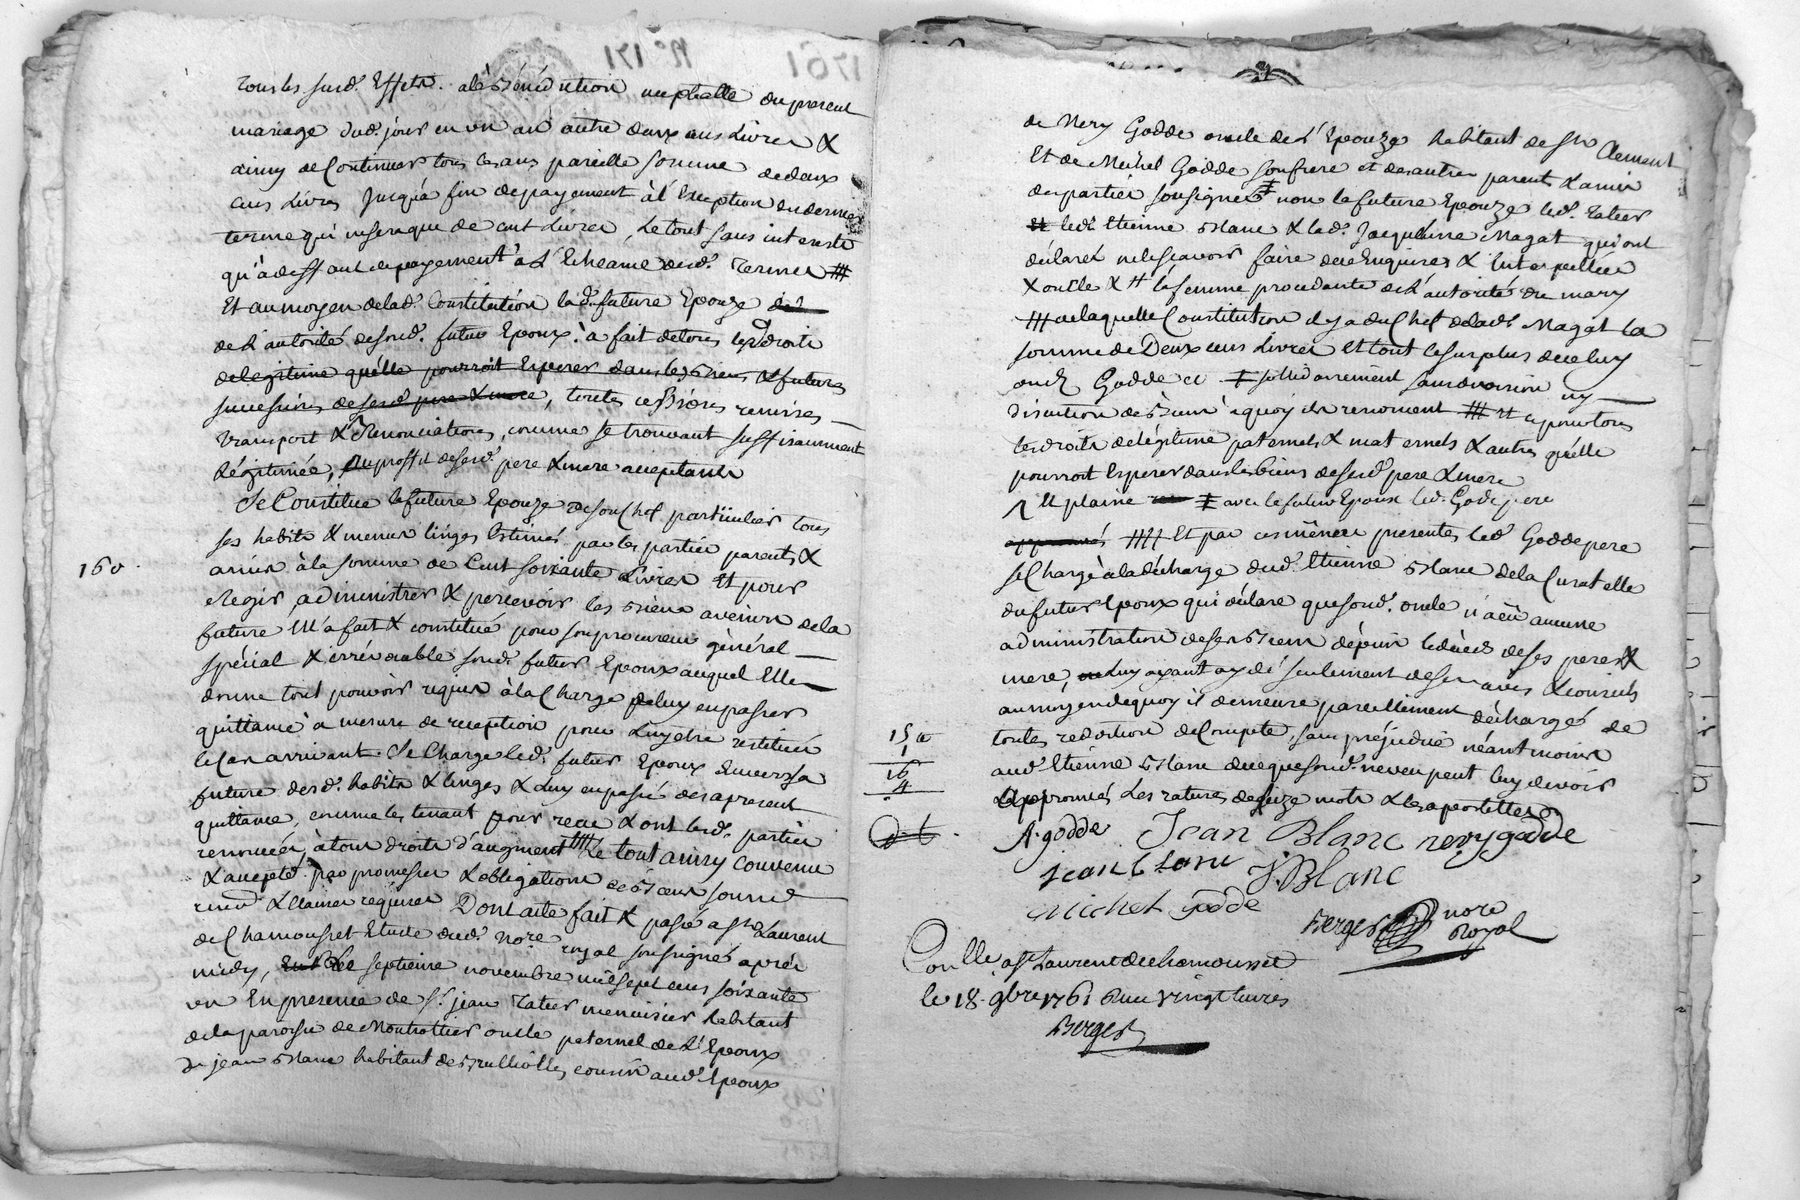 tous les susd. Effets. a la Bénédiction nuptialle du present
mariage dud. jour en un an autre deux cens Livres &
ainsy de Continuer tous les ans pareille somme de deux
cens Livres jusqu'a fin de payement à l'Exception du dernier
terme qui ne sera que de cent Livres, Le tout sans interests
qu'à deffaut de payement à L'Echeance desd. Termes
Et au moyen de lad. Constitution lad. future Epouze
de L'autorité de sond. futur Epoux à fait de tous les droits
de legitime qu'elle pourroit Esperer dans les Biens & futures
successions de sesd. pere & mere, toutes cessions remises
transport & Renonciations, comme se trouvant suffisamment
Légitimée, au proffit de sesd. pere & mere acceptants
Se Constitue la future Epouze de son Chef particulier tous
ses habits & menus linges Estimés par les parties parents &
amis à la somme de Cent soixante Livres Et pour
160
Regir administrer & percevoir les Biens avenir de la
future Ell'a fait & constitué pour son procureur général
spécial & irrévocable sond. futur Epoux auquel Elle
donne tout pouvoir requis à la Charge de luy en passer
quittance a mesure de reception pour Luy etre restitués
le Cas arrivant Se Charge led. futur Epoux Envers sa
future desd. habits & linges & luy en passe des a present
quittance, comme les tenant pour receu & ont lesd. parties
renoncées à tous droits d'augment Le tout ainsy convenu
& accepté par promesses & obligations de Biens soumis
& Clauses requises Dont acte fait & passé a St. Laurent
de Chamousset Etude dud. No.re royal soussigné après
midy, Le septieme novembre mil sept cens soixante
un En presence de Sr. jean Tatier menuisier habitant
de la paroisse de Montrottier oncle paternel de L'Epoux
de jean Blanc habitant de Brullioles, cousin aud. Epoux
de Remy Godde oncle de L'Epouze habitant de Ste Clement
Et de Michel Godde son frere et des autres parents & amis
des parties soussignés non la future Epouze led. Tatier
led. Etienne Blanc & lad. Jacqueline Magat qui ont
déclaré ne le scavoir faire de ce Enquises & Interpellées
& la femme procedante de L'autorité du mary
de laquelle Constitution il y a du Chef de lad. Magat la
somme de Deux cens Livres Et tout le surplus de celuy
dud. Godde sollidairement sans division ny
discution de Biens a quoy ils renoncent Et ce pour tous
les droits de légitime paternels & maternels & autres qu'elle
pourroit Esperer dans les biens de sesd. pere & mere
avec le futur Epoux led. Godde pere
Et par ces mêmes presentes led. Godde pere
se Chargé à la décharge dud. Etienne Blanc de la Curatelle
du futur Epoux qui déclare que sond. oncle n'a eü aucune
administration de ses Biens depuis le décès de ses pere &
mere, Luy ayant aydé seulement de ses avis & conseils
au moyen de quoy il demeure pareillement déchargé de
toutes reddition de Compte, sans préjudice néantmoins
aud. Etienne Blanc de ce que sond. neveu peut luy devoir
approuvés Les ratures de seize mots & les apostilles
A. godde Jean Blanc remy godde
jean blanc J. Blanc
michel godde
Berger no.re Royal
Con.llé a St. Laurent de chamousset
le 18. 9bre 1761 Receu Vingt livres
Berger